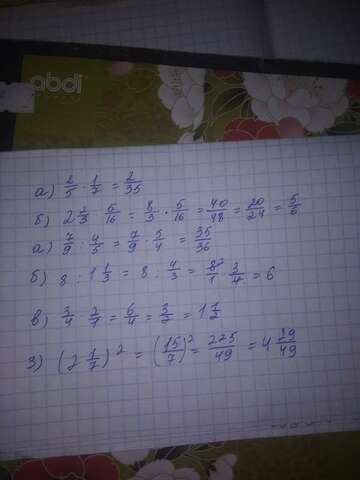 abdi
а) 2/5 · 1/7 = 2/35
б) 2 2/3 · 5/16 = 8/3 · 5/16 = 40/48 = 20/24 = 5/6
а) 7/9 : 4/5 = 7/9 · 5/4 = 35/36
б) 8 : 1 1/3 = 8 : 4/3 = 8²/1 · 3/4 = 6
в) 3/4 2/7 = 6/4 = 3/2 = 1 1/2
3) (2 1/7)² = (15/7)² = 225/49 = 4 29/49